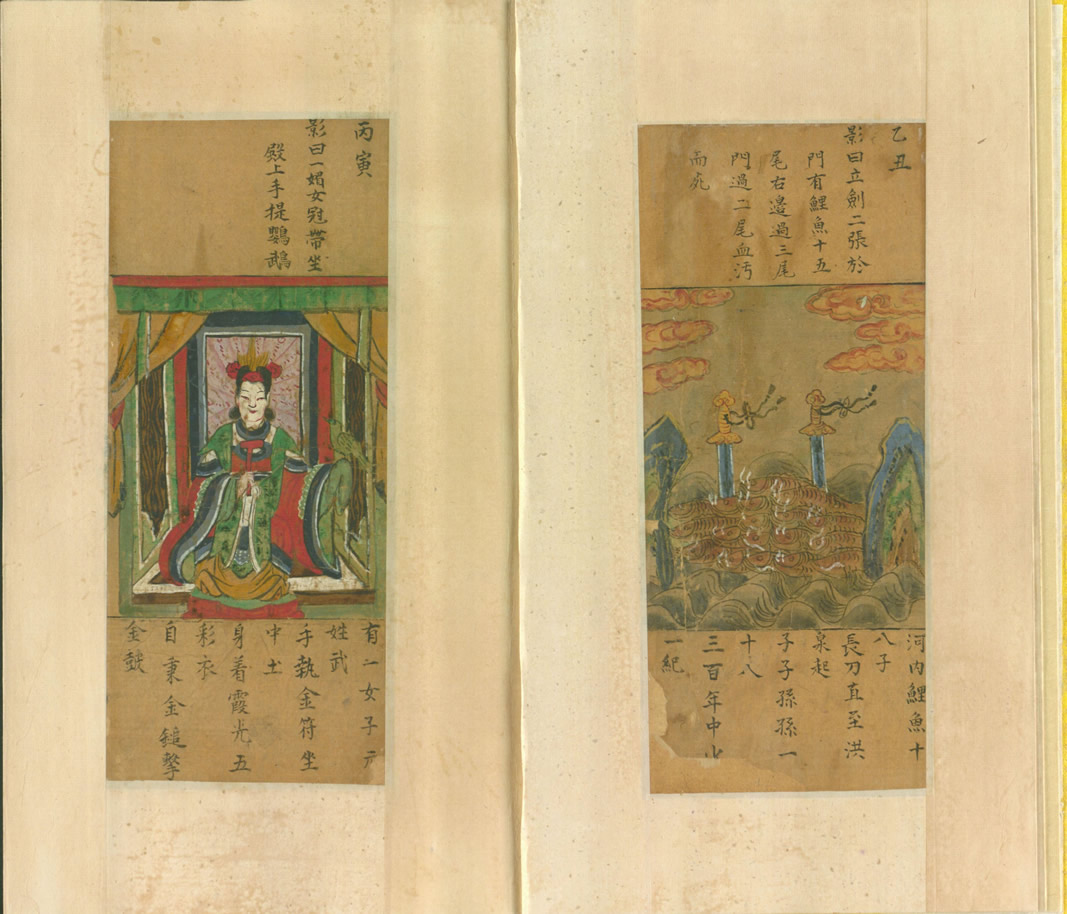 乙丑
影曰立劍二張於
門有鯉魚十五
尾右邊過三尾
門過二尾血污
而死
河內鯉魚十
八子
長刀直至洪
泉起
子子孫孫一
十八
三百年中
一紀
丙寅
影曰一媚女冠帶坐
殿上手提鸚鵡
有一女子元
姓武
手執金符坐
中土
身着霞光五
彩衣
自秉金鎚擊
金鼓